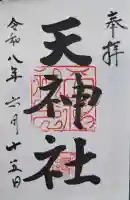 奉拝
天神社
令和八年六月十五日